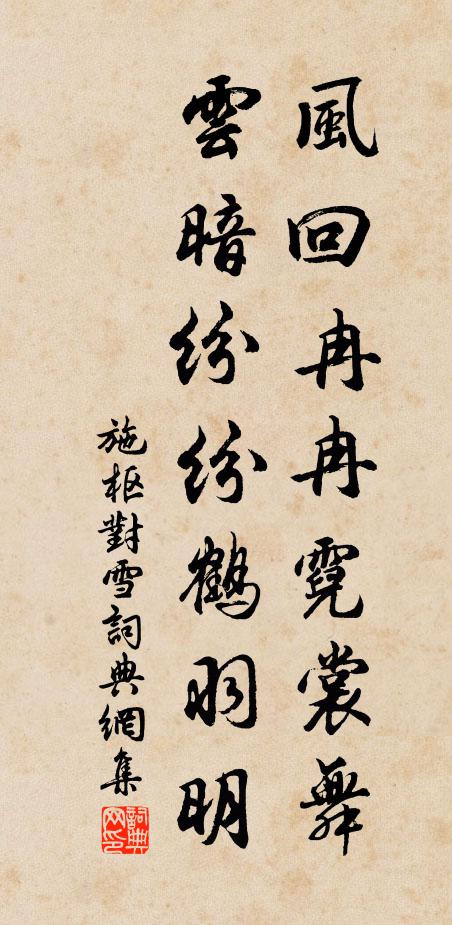 風回冉冉霓裳舞
雲暗紛紛鶴羽明
施枢對雪詞典網集
詞典网印